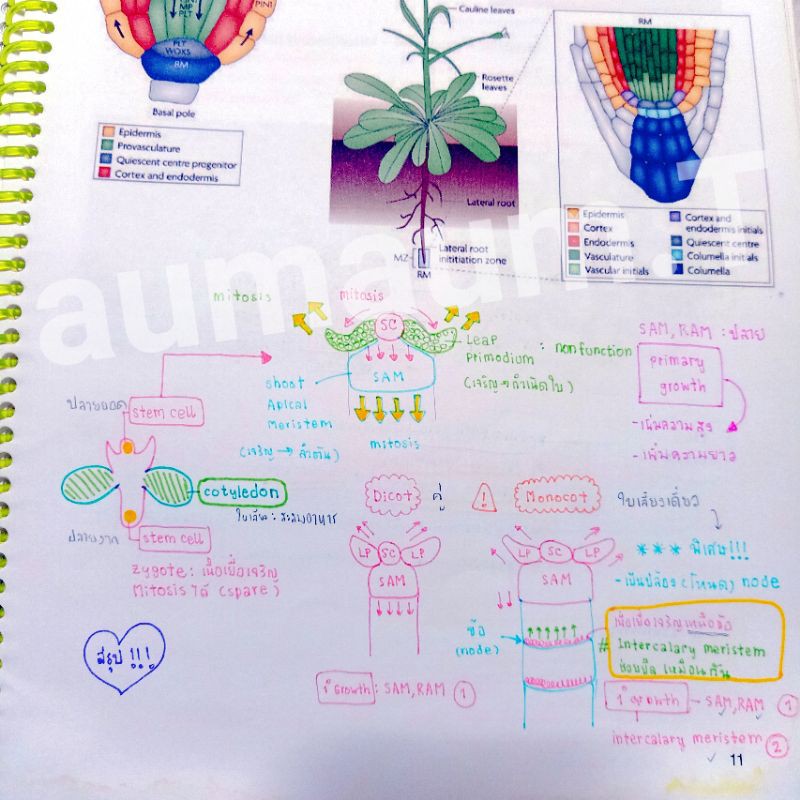 PIN1
MP
PLT
PLT
WOX5
RM
Basal pole
Epidermis
Provasculature
Quiescent centre progenitor
Cortex and endodermis
Cauline leaves
Rosette
leaves
Lateral root
Lateral root
inititiation zone
MZ
RM
RM
Epidermis
Cortex
Endodermis
Vasculature
Vascular initials
Cortex and
endodermis initials
Quiescent centre
Columella initials
Columella
aumaum.T
mitosis
mitosis
SC
SAM
Leaf
Primodium
: nonfunction
(เจริญ→กำเนิดใบ)
Shoot
Apical
Meristem
(เจริญ → ลำต้น)
mitosis
SAM, RAM : ปลาย
primary
growth
-เพิ่มความสูง
-เพิ่มความยาว
ปลายยอด
stem cell
cotyledon
ใบเลี้ยง : สะสมอาหาร
ปลายราก
stem cell
zygote : เนื้อเยื่อเจริญ
Mitosis ได้ (spare)
สรุป !!!
Dicot คู่
LP SC LP
SAM
1° Growth : SAM, RAM 1
! Monocot ใบเลี้ยงเดี่ยว
*** พิเศษ!!!
-เป็นปล้อง (โหนด) node
LP SC LP
SAM
ข้อ
(node)
เนื้อเยื่อเจริญเหนือข้อ
# Intercalary meristem
ช่วยยืด เหมือนกัน
1° growth - SAM, RAM 1
intercalary meristem 2
11